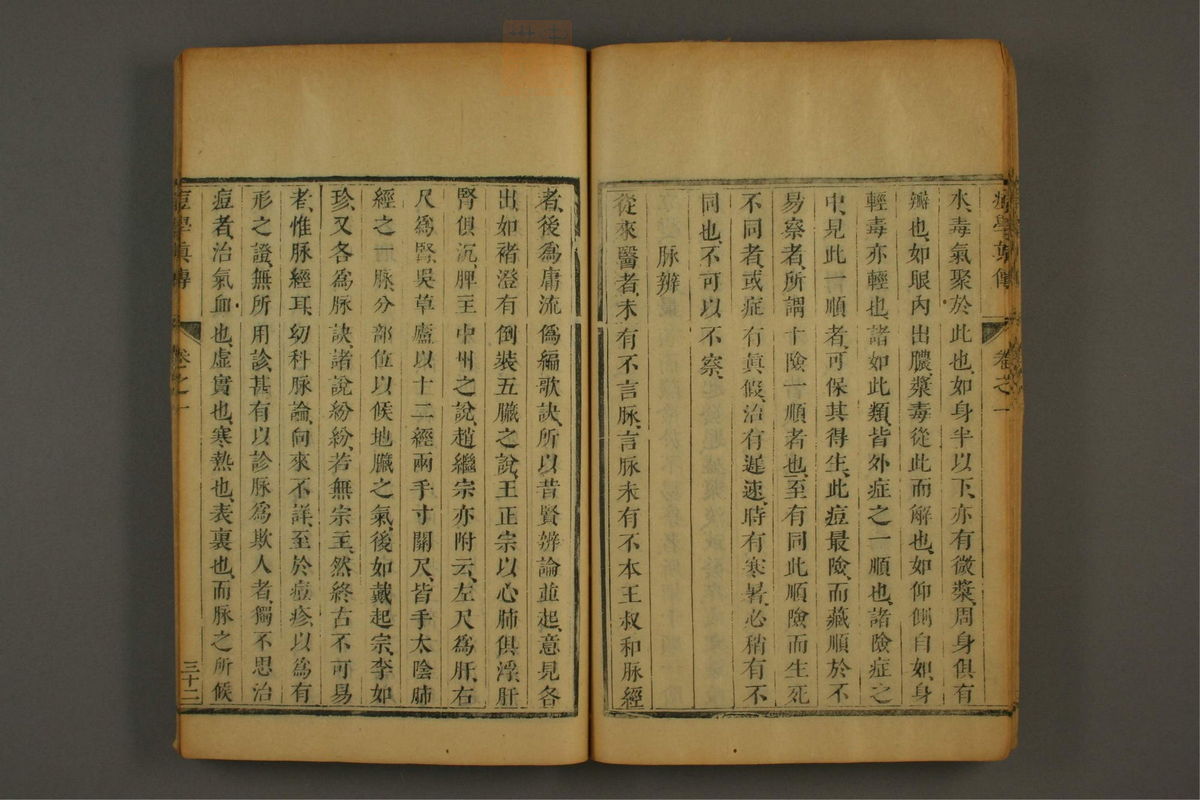 痘學眞傳 卷之一
水、毒氣聚於此也、如身半以下、亦有微漿、周身俱有
瓣也、如眼內出膿漿、毒從此而解也、如仰側自如、身
輕毒亦輕也、諸如此類、皆外症之一順也、諸險症之
中、見此一順者、可保其得生、此痘最險、而藏順於不
易察者、所謂十險一順者也、至有同此順險而生死
不同者、或症有眞假、治有遲速、時有寒暑、必稍有不
同也、不可以不察、
脉辨
從來醫者、未有不言脉、言脉未有不本王叔和脉經
者、後爲庸流僞編歌訣、所以昔賢辨論並起、意見各
出、如褚澄有倒裝五臟之說、王正宗以心肺俱浮、肝
腎俱沉、脾主中州之說、趙繼宗亦附云、左尺爲肝、右
尺爲腎、吳草廬以十二經兩手寸關尺、皆手太陰肺
經之一脉、分部位以候他臟之氣、後如戴起宗、李如
珍、又各爲脉訣、諸說紛紛、若無宗主、然終古不可易
者、惟脉經耳、幼科脉論、向來不詳、至於痘疹、以爲有
形之證、無所用診、甚有以診脉爲欺人者、獨不思治
痘者、治氣血也、虛實也、寒熱也、表裏也、而脉之所候
痘學眞傳 卷之一 三十二